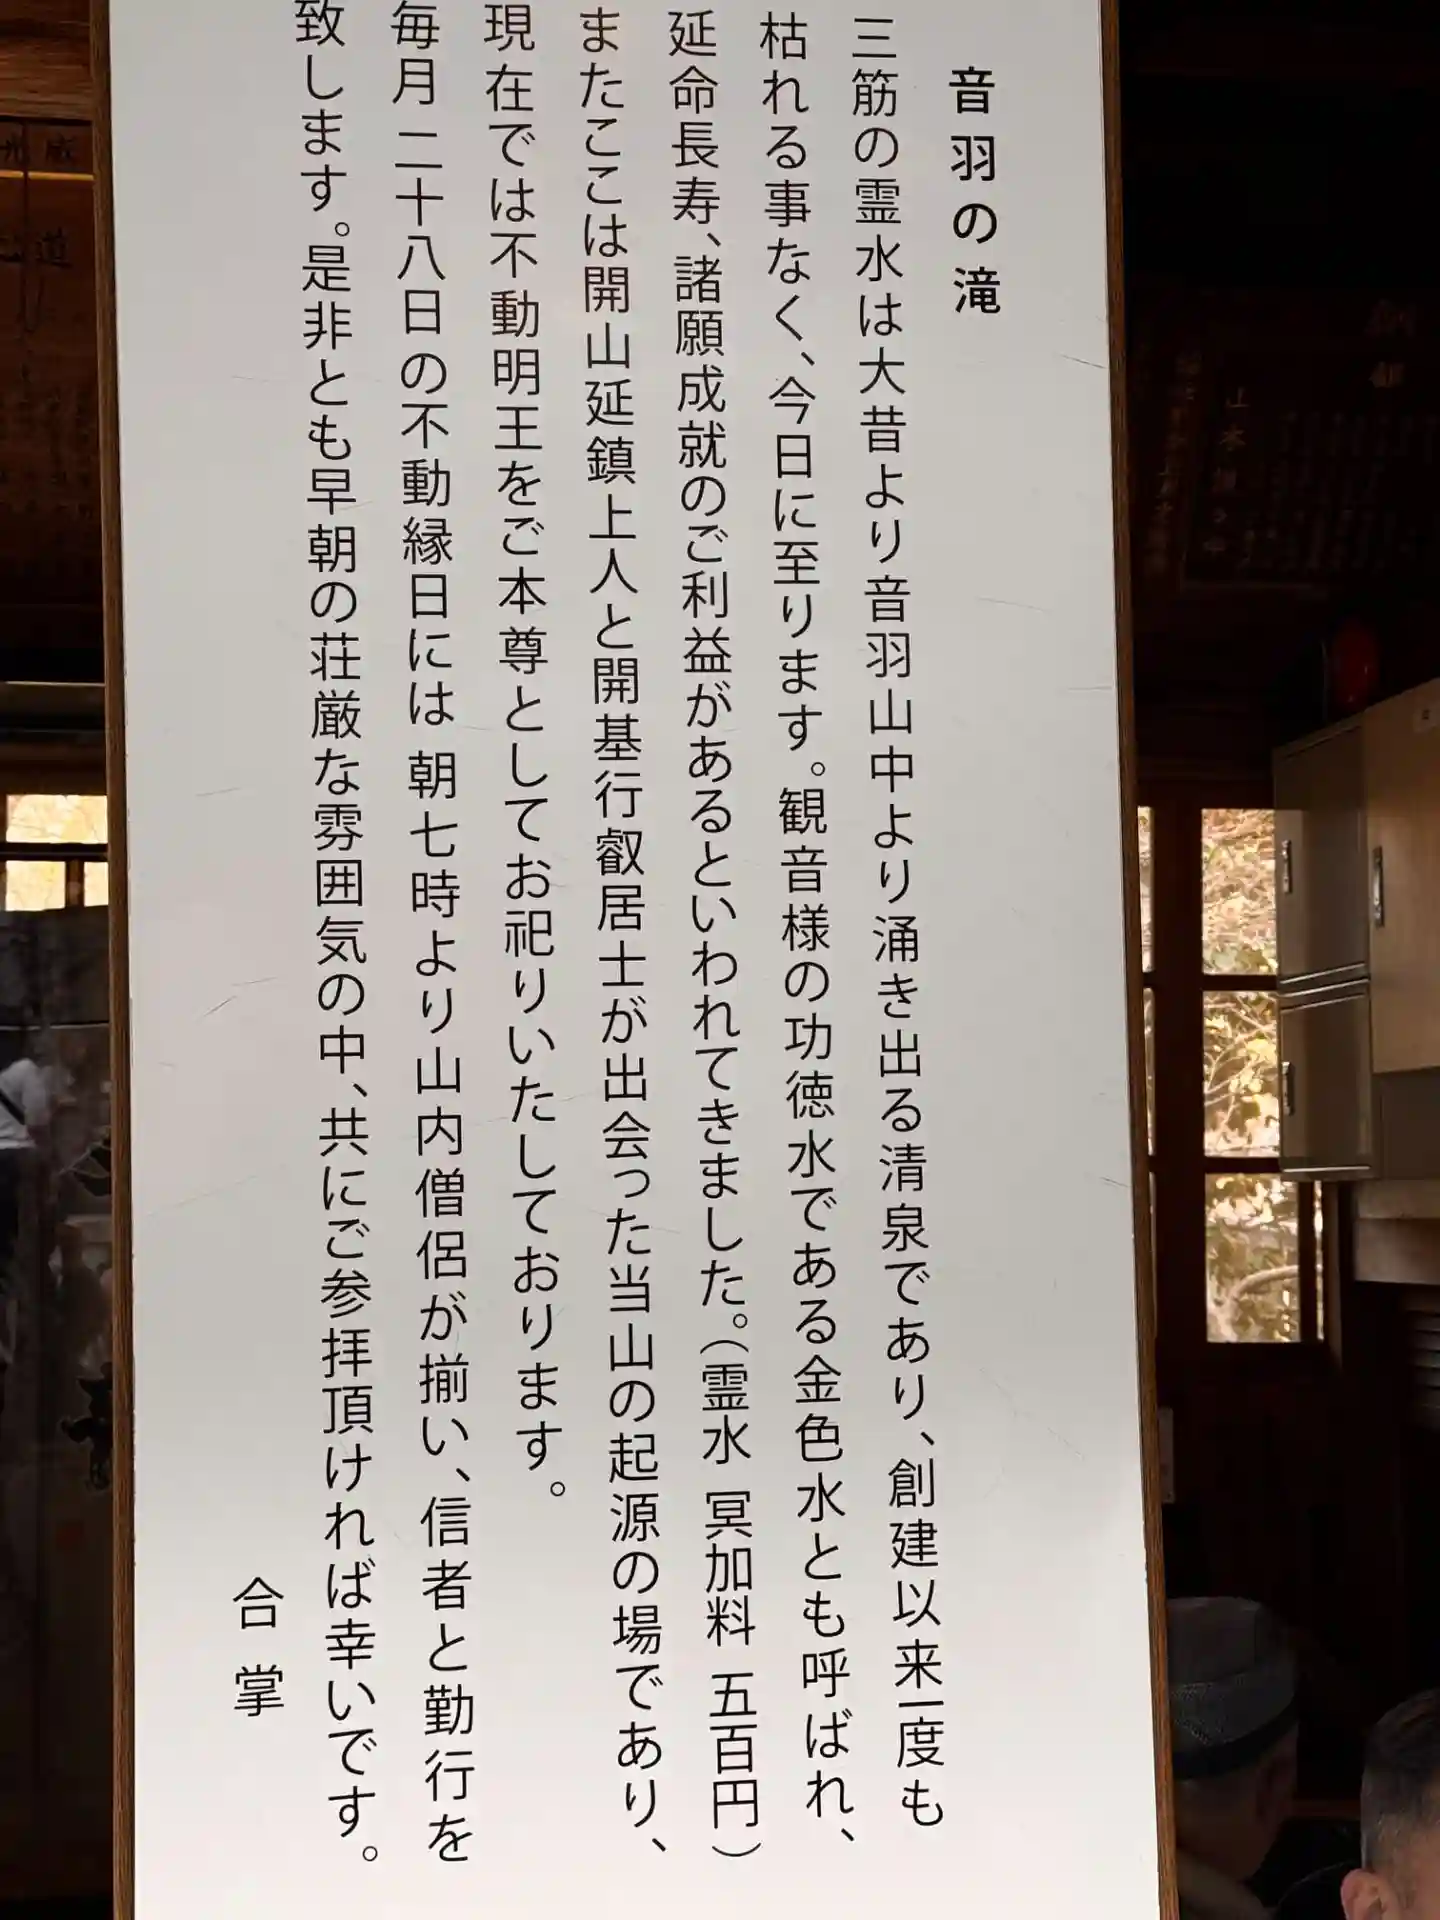 音羽の滝
三筋の霊水は大昔より音羽山中より涌き出る清泉であり、創建以来一度も
枯れる事なく、今日に至ります。観音様の功徳水である金色水とも呼ばれ、
延命長寿、諸願成就のご利益があるといわれてきました。（霊水 冥加料 五百円）
またここは開山延鎮上人と開基行叡居士が出会った当山の起源の場であり、
現在では不動明王をご本尊としてお祀りいたしております。
毎月二十八日の不動縁日には 朝七時より山内僧侶が揃い、信者と勤行を
致します。是非とも早朝の荘厳な雰囲気の中、共にご参拝頂ければ幸いです。
合掌